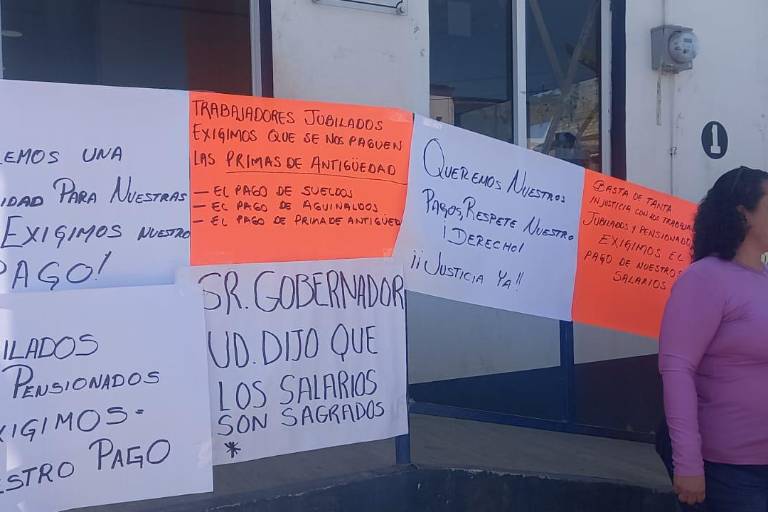 EMOS UNA
IDAD PARA NUESTRAS
EXIGIMOS NUESTRO
PAGO!
TRABAJADORES JUBILADOS
EXIGIMOS QUE SE NOS PAGUEN
LAS PRIMAS DE ANTIGÜEDAD
- EL PAGO DE SUELDOS
- EL PAGO DE AGUINALDOS
- EL PAGO DE PRIMA DE ANTIGÜED
QUEREMOS NUESTROS
PAGOS, RESPETE NUESTRO
¡DERECHO!
¡¡JUSTICIA YA!!
BASTA DE TANTA
INJUSTICIA CON LOS TRABAJA
JUBILADOS Y PENSIONADO
EXIGIMOS EL
PAGO DE NUESTROS
SALARIOS
ILADOS
PENSIONADOS
XIGIMOS-
ESTRO PAGO
SR. GOBERNADOR
UD. DIJO QUE
LOS SALARIOS
SON SAGRADOS
*
1